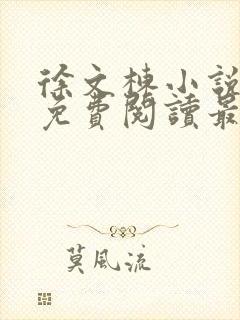 徐文棟小說
免費閱讀最
莫風流